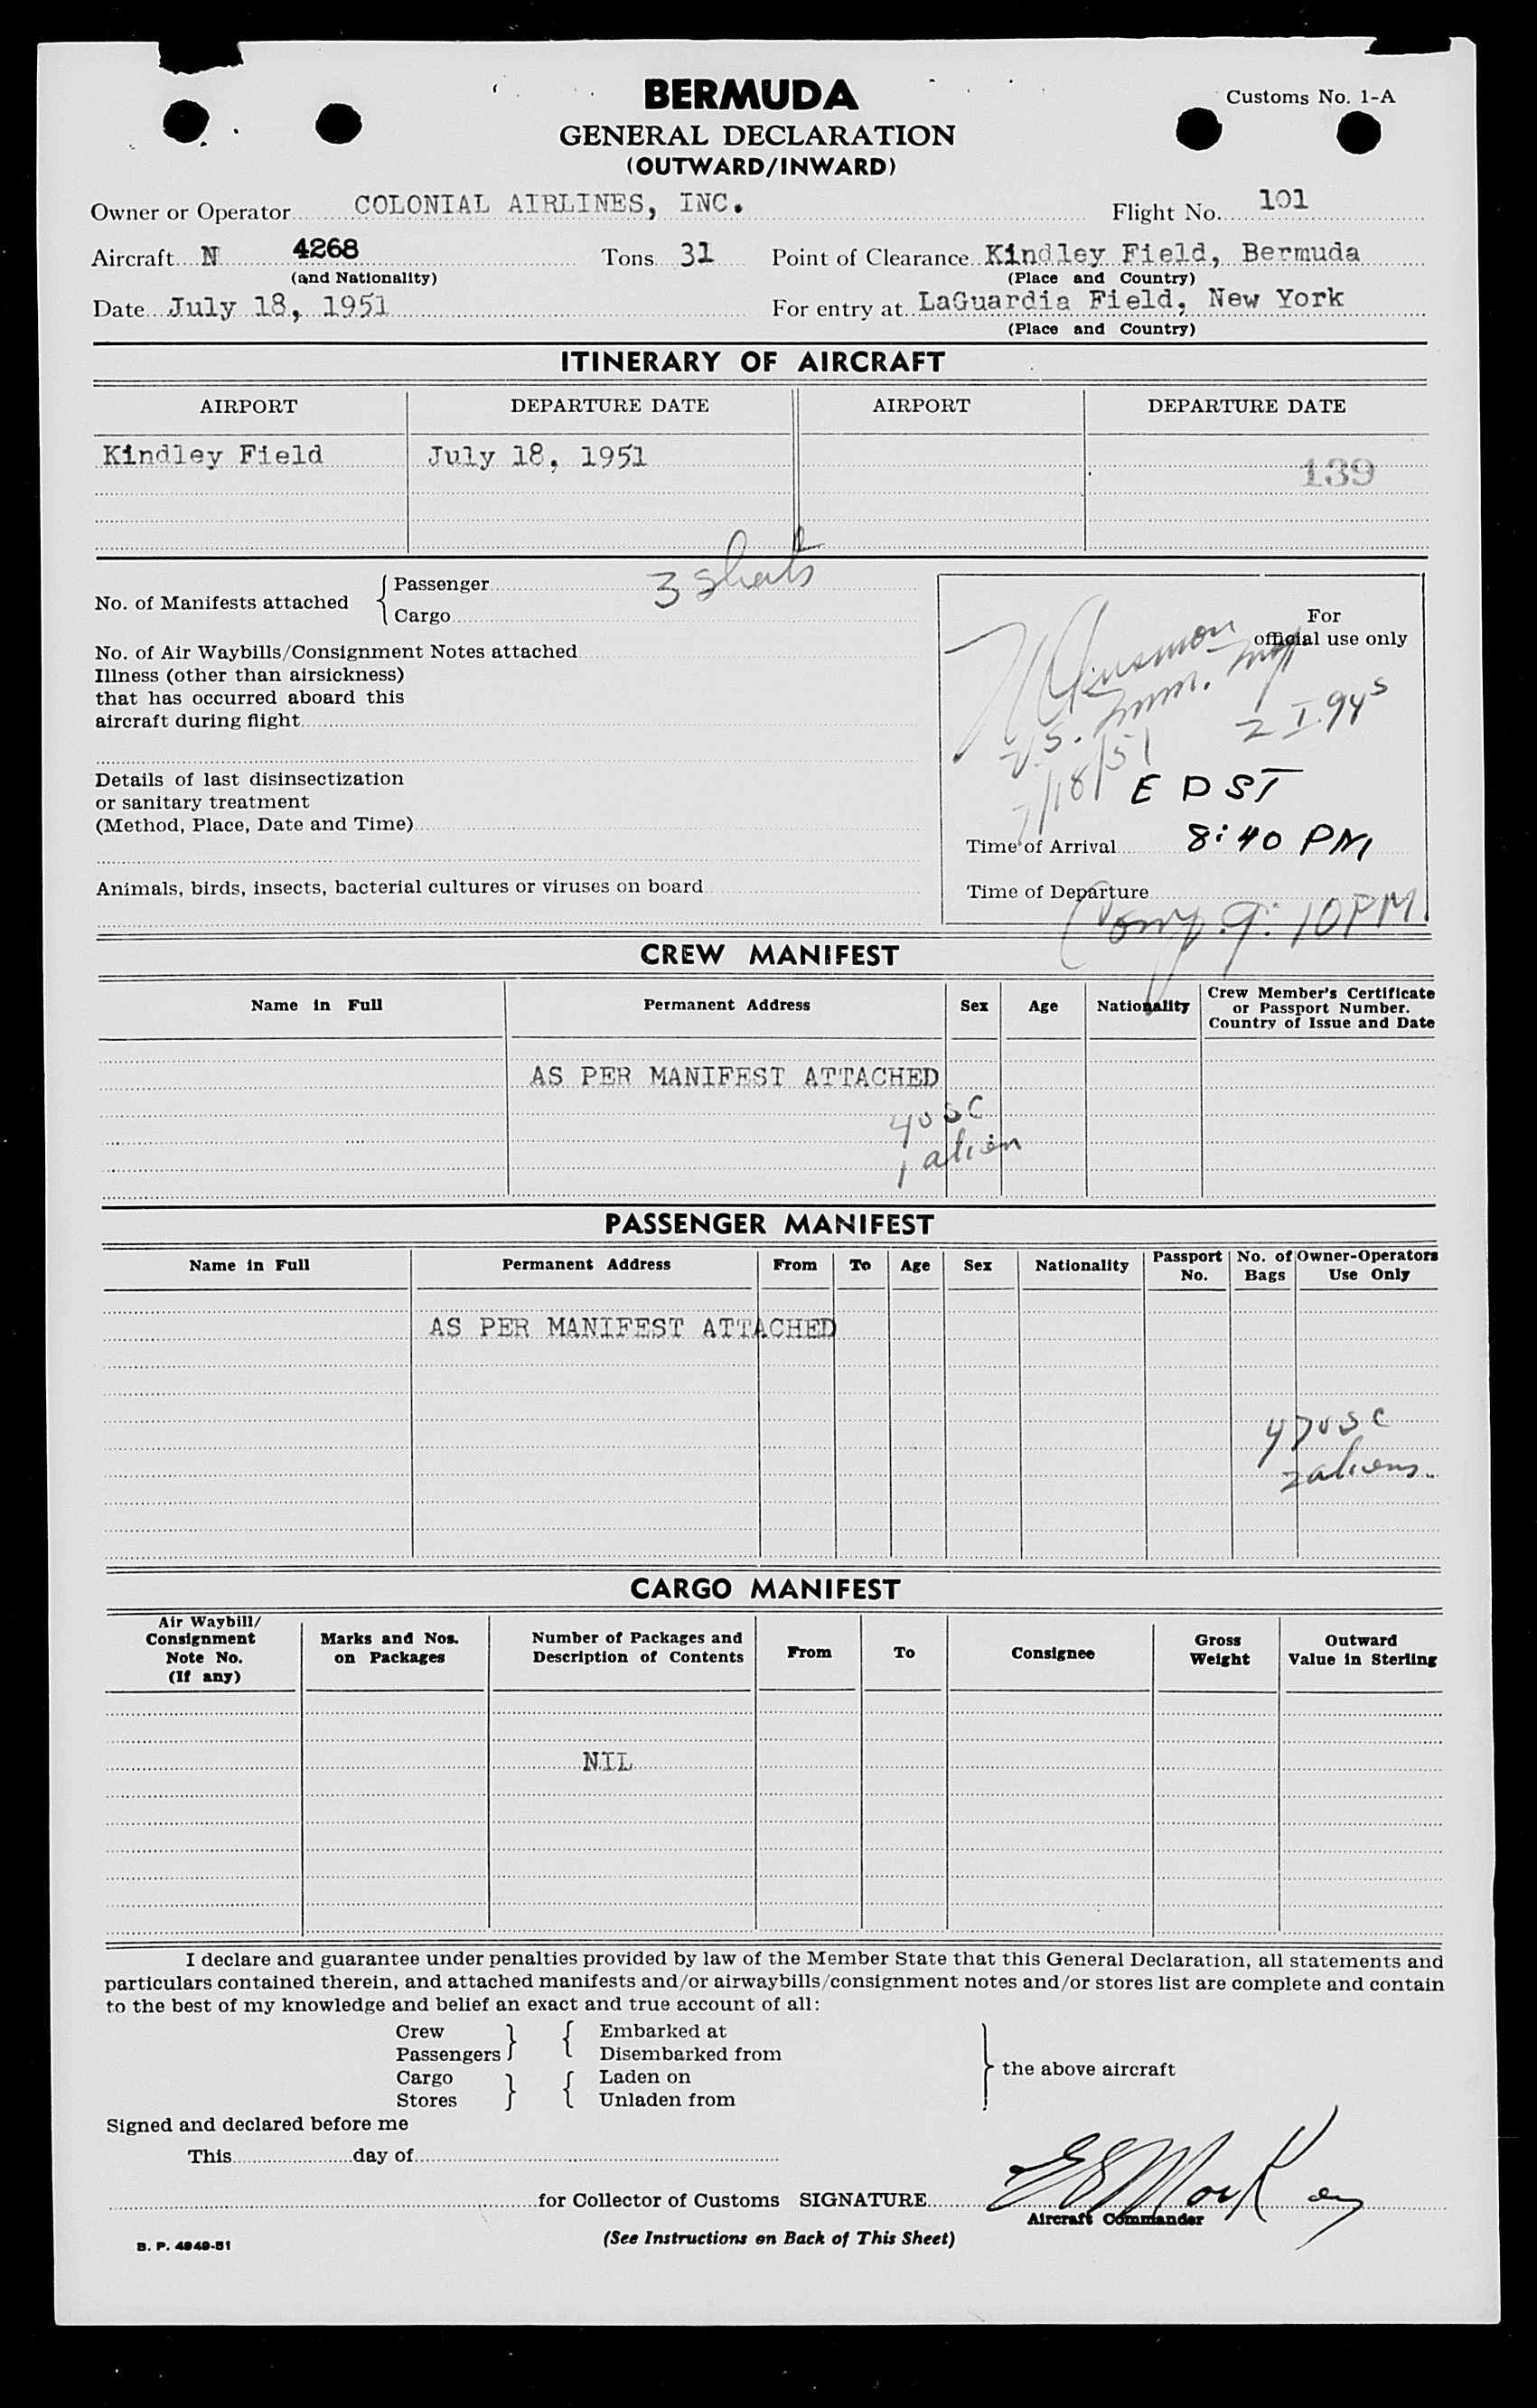 BERMUDA
Customs No. 1-A
GENERAL DECLARATION
(OUTWARD/INWARD)
Owner or Operator COLONIAL AIRLINES, INC. Flight No. 101
Aircraft N 4268 Tons 31 Point of Clearance Kindley Field, Bermuda
(and Nationality) (Place and Country)
Date July 18, 1951 For entry at LaGuardia Field, New York
(Place and Country)
ITINERARY OF AIRCRAFT
AIRPORT DEPARTURE DATE AIRPORT DEPARTURE DATE
Kindley Field July 18, 1951
139
No. of Manifests attached { Passenger 3 sheets
Cargo
For
official use only
No. of Air Waybills/Consignment Notes attached
Illness (other than airsickness)
that has occurred aboard this
aircraft during flight
U.S. Imm.
2 I.94s
7/18/51
Details of last disinsectization
or sanitary treatment
(Method, Place, Date and Time)
E D S T
Time of Arrival 8:40 PM
Animals, birds, insects, bacterial cultures or viruses on board
Time of Departure
10 PM
CREW MANIFEST
Name in Full Permanent Address Sex Age Nationality Crew Member's Certificate
or Passport Number.
Country of Issue and Date
AS PER MANIFEST ATTACHED
4 USC
1 alien
PASSENGER MANIFEST
Name in Full Permanent Address From To Age Sex Nationality Passport No. No. of Bags Owner-Operators Use Only
AS PER MANIFEST ATTACHED
47 USC
2 aliens.
CARGO MANIFEST
Air Waybill/
Consignment
Note No.
(If any)
Marks and Nos.
on Packages
Number of Packages and
Description of Contents
From To Consignee
Gross
Weight
Outward
Value in Sterling
NIL
I declare and guarantee under penalties provided by law of the Member State that this General Declaration, all statements and
particulars contained therein, and attached manifests and/or airwaybills/consignment notes and/or stores list are complete and contain
to the best of my knowledge and belief an exact and true account of all:
Crew } { Embarked at
Passengers Disembarked from
} the above aircraft
Cargo } { Laden on
Stores Unladen from
Signed and declared before me
This day of
for Collector of Customs SIGNATURE
Aircraft Commander
(See Instructions on Back of This Sheet)
B. P. 4949-51